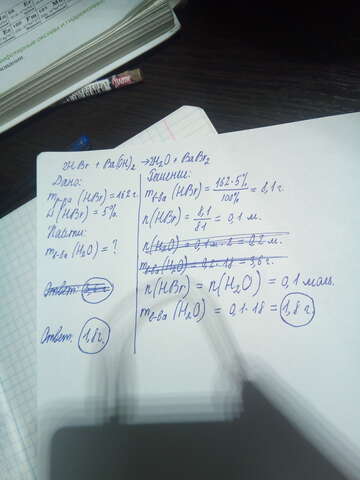 2HBr + Ba(OH)₂ → 2H₂O + BaBr₂
Дано:
m р-ра (HBr) = 162 г
ω (HBr) = 5%
Найти:
m в-ва (H₂O) = ?
Ответ: 3,6 г.
Ответ: 1,8 г.
Решение:
m в-ва (HBr) = 162·5% / 100% = 8,1 г.
n (HBr) = 8,1 / 81 = 0,1 м.
n (H₂O) = 0,1 м · 2 = 0,2 м.
m в-ва (H₂O) = 0,2 · 18 = 3,6 г.
n (HBr) = n (H₂O) = 0,1 моль.
m в-ва (H₂O) = 0,1 · 18 = 1,8 г.